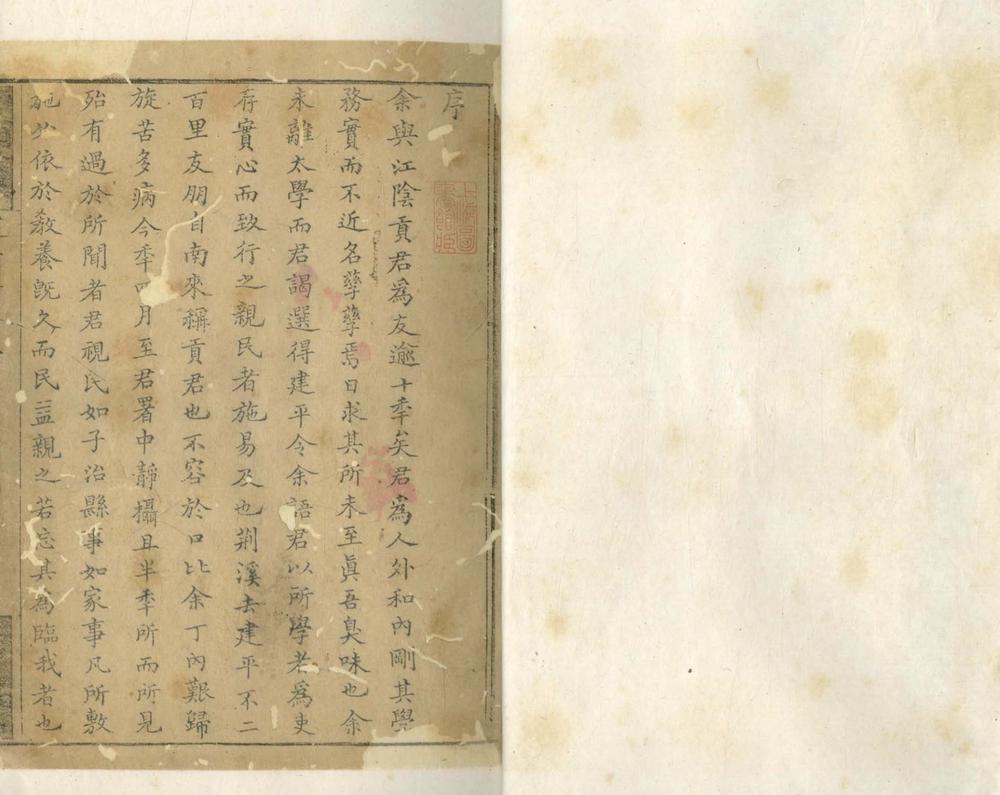 序
上海圖書館藏
余與江陰貢君為友逾十秊矣君為人外和內剛其學
務實而不近名孳孳焉日求其所未至眞吾臭味也余
未離太學而君謁選得建平令余語君以所學者為吏
存實心而致行之親民者施易及也荆溪去建平不二
百里友朋自南來稱貢君也不容於口比余丁內艱歸
旋苦多病今秊四月至君署中靜攝且半秊所而所見
殆有過於所聞者君視民如子治縣事如家事凡所敷
施必依於教養旣久而民益親之若忘其為臨我者也